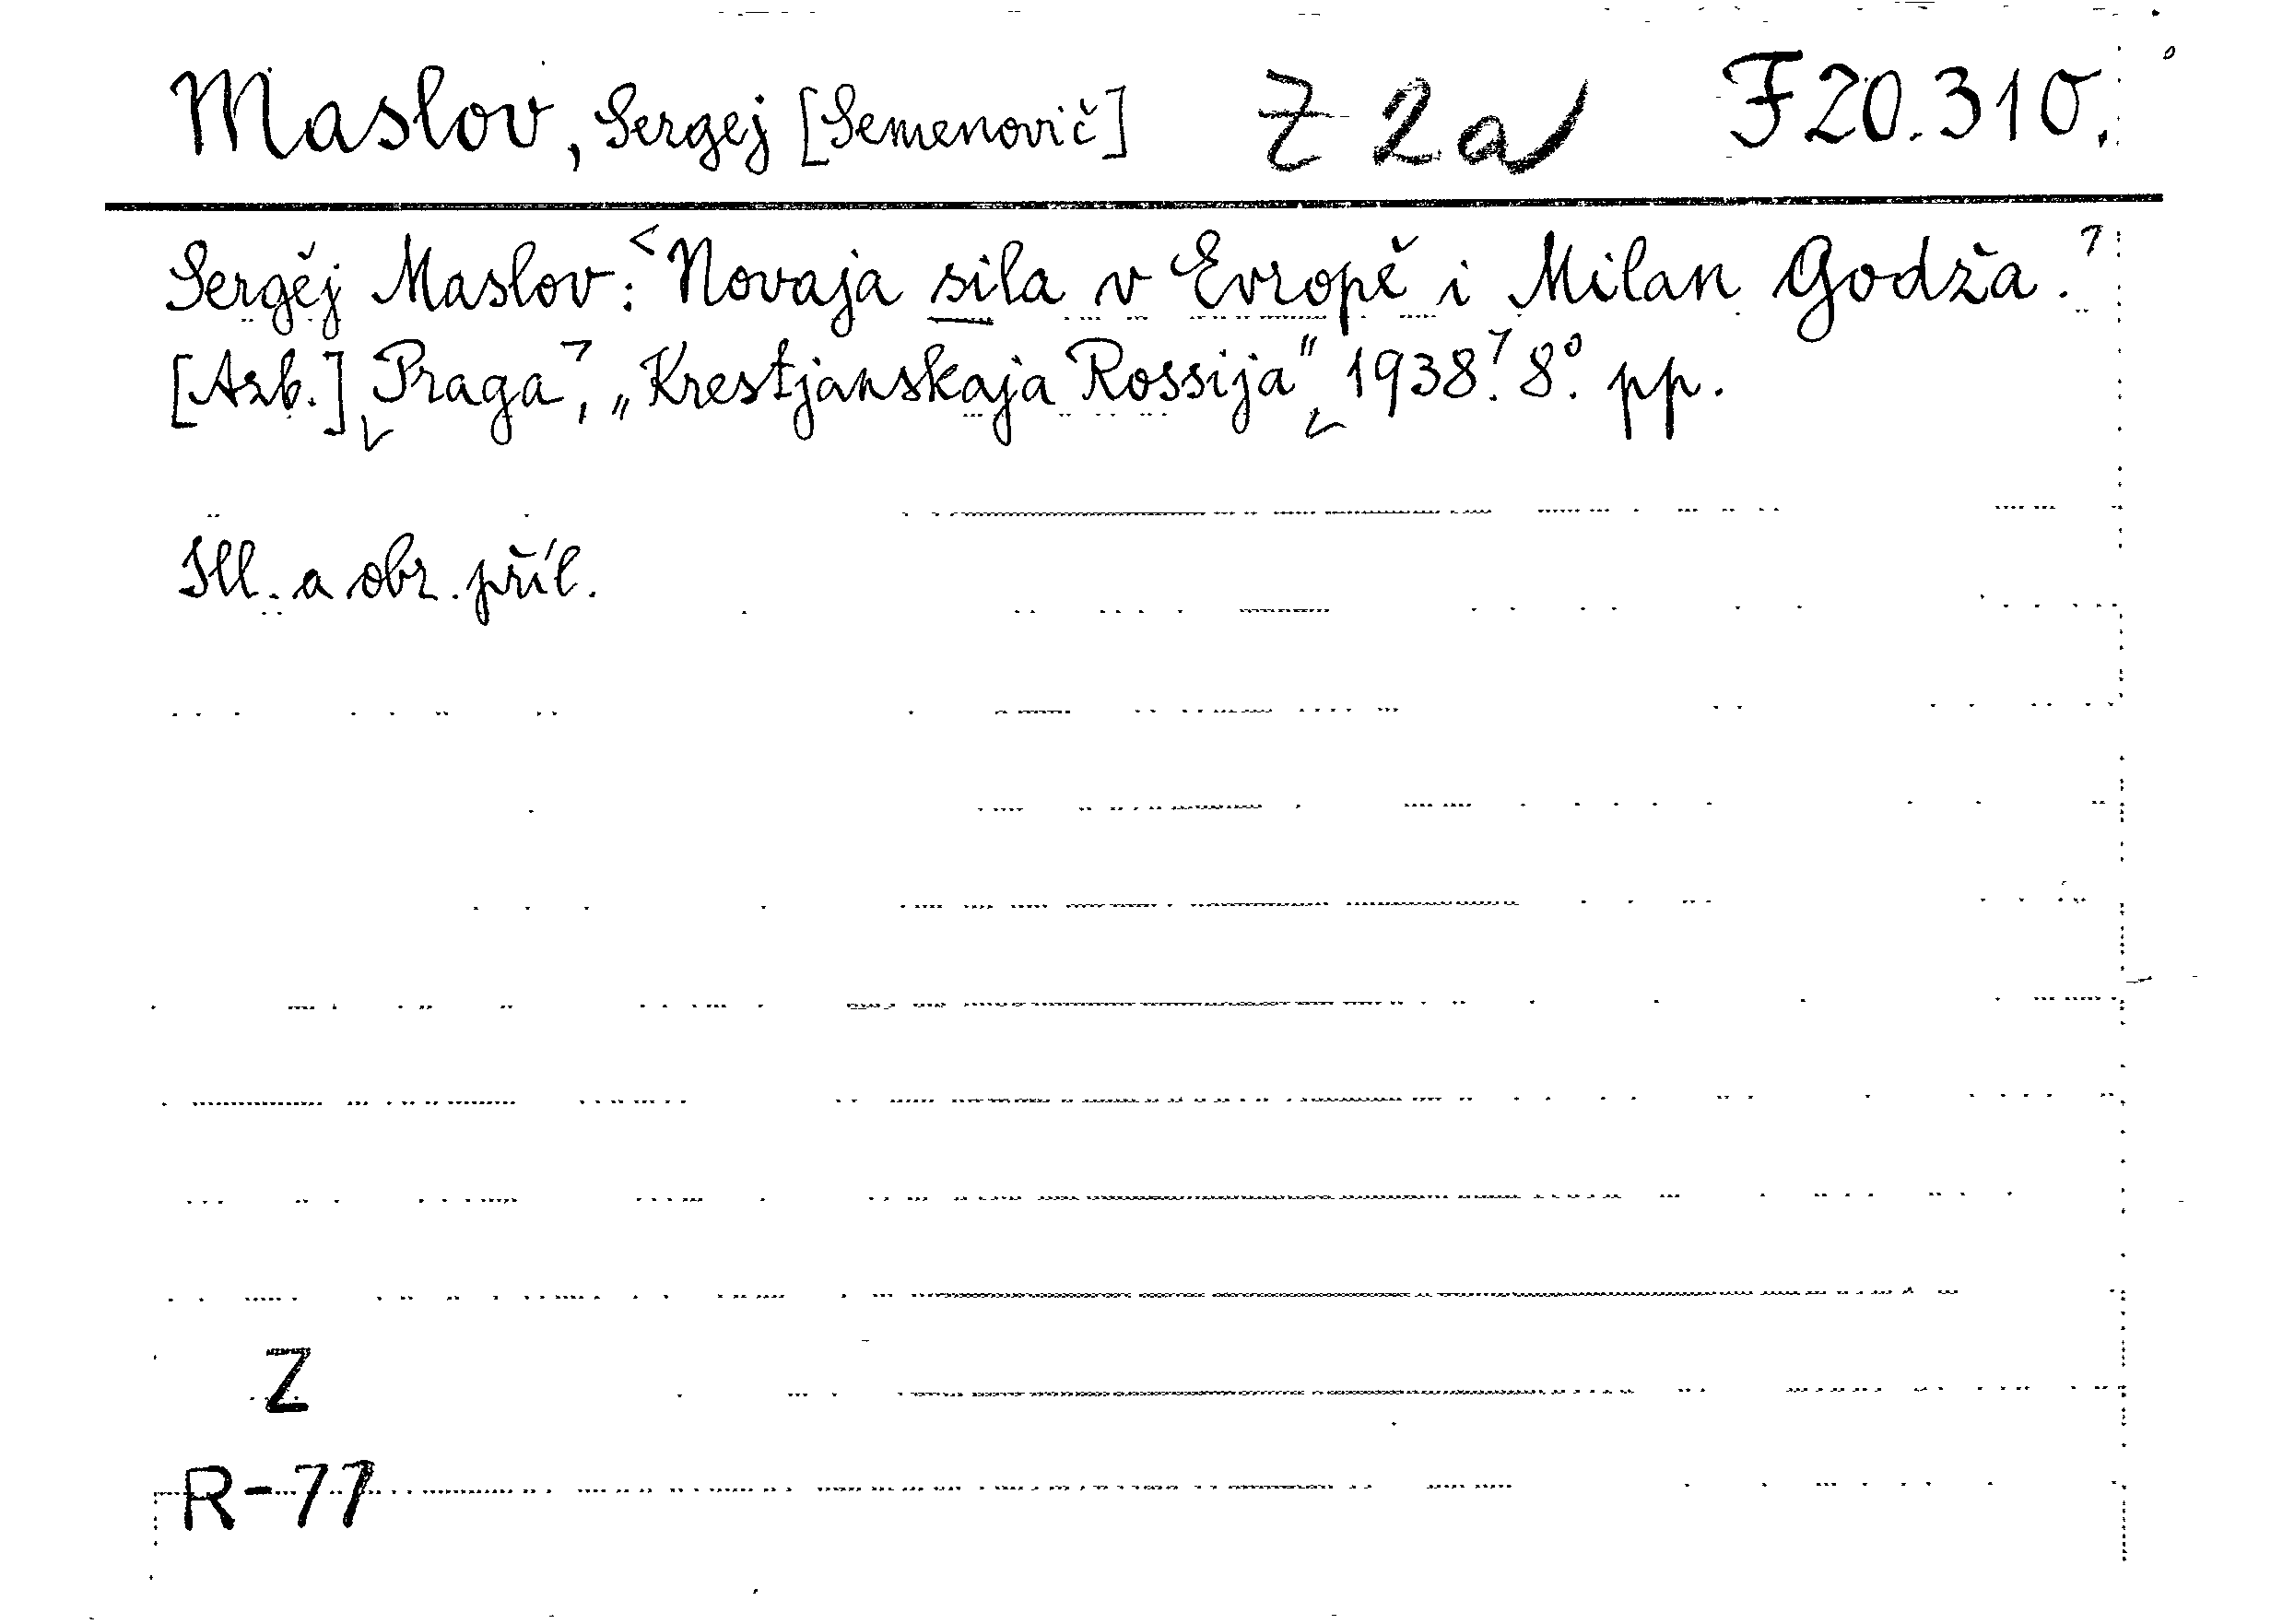 Maslov, Sergej [Semenovič] Z 2a F 20.310.
Sergěj Maslov: <Novaja sila v Evropě i Milan Godža.>
[Azb.] Praga, „Krestjanskaja Rossija" 1938. 8°. pp.
Ill. a obr. příl.
Z
R-77